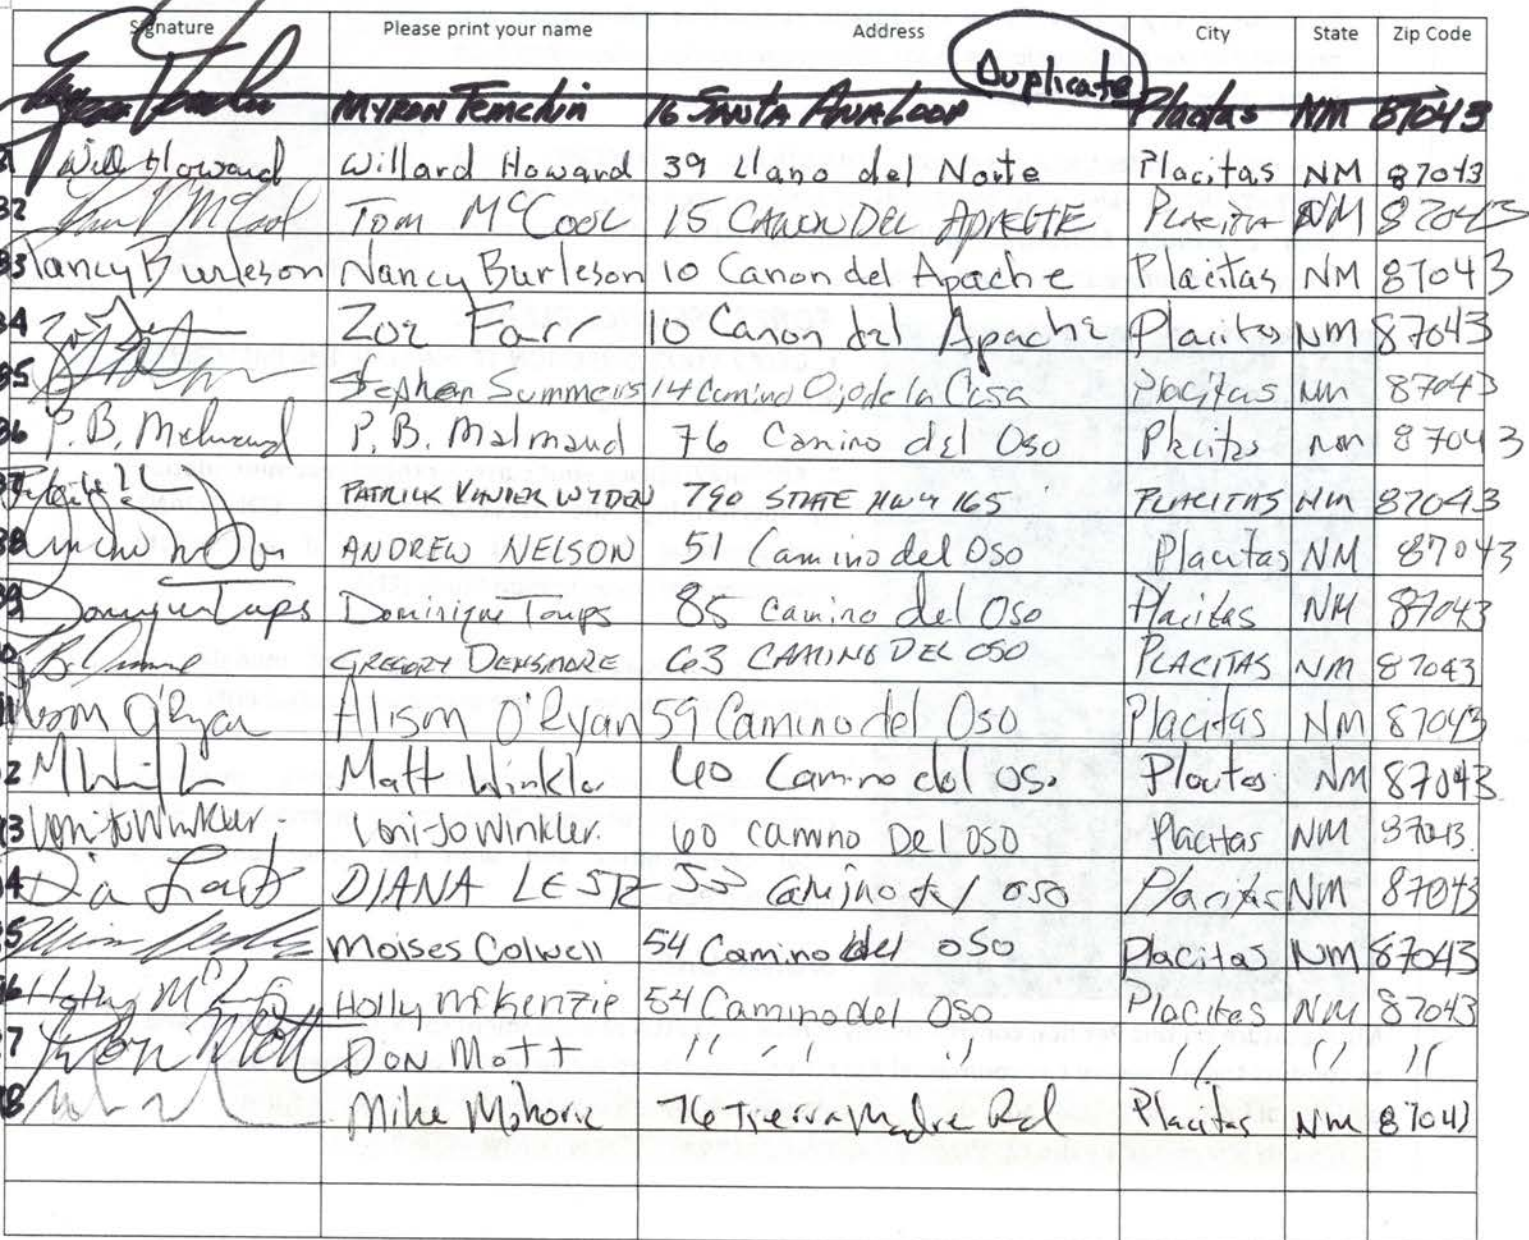 Signature Please print your name Address City State Zip Code
Duplicate
Myron Temchin 16 Santa Ana Loop Placitas NM 87043
Will Howard Willard Howard 39 Llano del Norte Placitas NM 87043
32 McCool Tom McCool 15 CANON DEL Placitas NM 87043
33 Nancy Burleson Nancy Burleson 10 Canon del Apache Placitas NM 87043
34 Zoe Farr 10 Canon del Apache Placitas NM 87043
35 Stephen Summers 14 Camino Ojo de la Casa Placitas NM 87043
36 P.B. Malmaud P.B. Malmaud 76 Camino del Oso Placitas NM 87043
37 PATRICK VANDER WYDEN 790 STATE HWY 165 PLACITAS NM 87043
38 ANDREW NELSON 51 Camino del Oso Placitas NM 87043
39 Dominique Toups 85 Camino del Oso Placitas NM 87043
GREGORY DENSMORE 63 CAMINO DEL OSO PLACITAS NM 87043
Alison O'Ryan Alison O'Ryan 59 Camino del Oso Placitas NM 87043
2 Matt Winkler 60 Camino del Oso Placitas NM 87043
3 Winkler Winkler 60 Camino Del Oso Placitas NM 87043
4 DIANA 55 Camino del Oso Placitas NM 87043
5 Moises Colwell 54 Camino del Oso Placitas NM 87043
6 Holly McKenzie 54 Camino del Oso Placitas NM 87043
7 Don Mott Don Mott " " " " " "
8 Mike 76 Tierra Madre Rd Placitas NM 87043